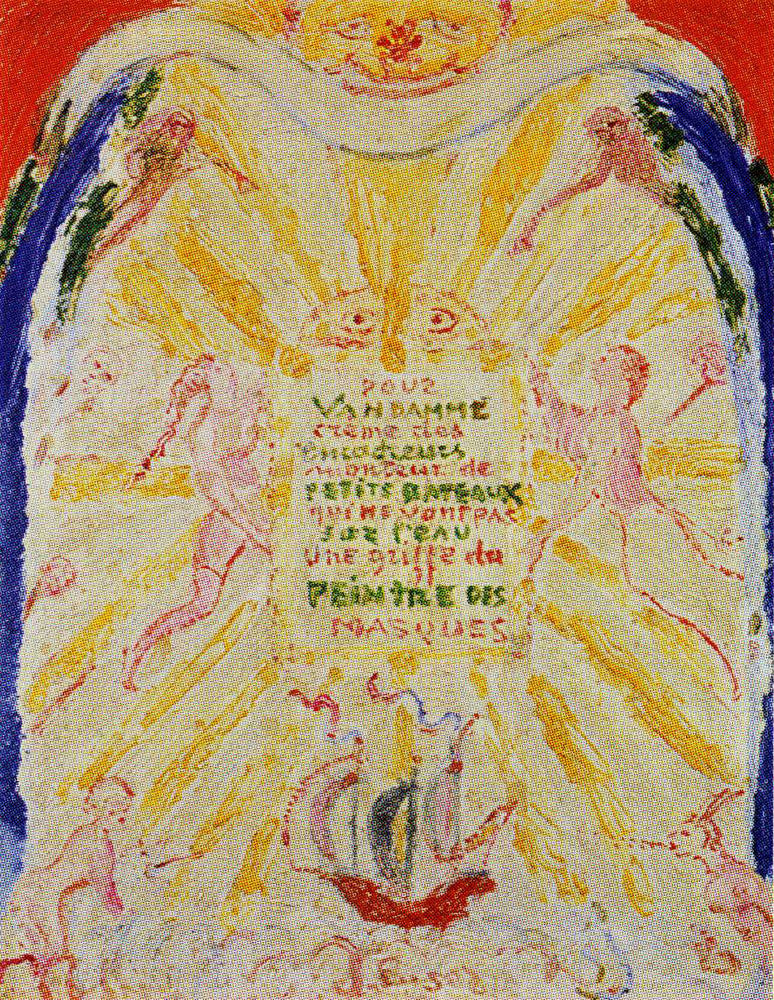 POUR
VANDAMME
crème des
emmancheurs
monteur de
PETITS BATEAUX
qui NE VONT PAS
SUR L'EAU
UNE griffe du
PEINTRE DES
MASQUES
J. Ensor